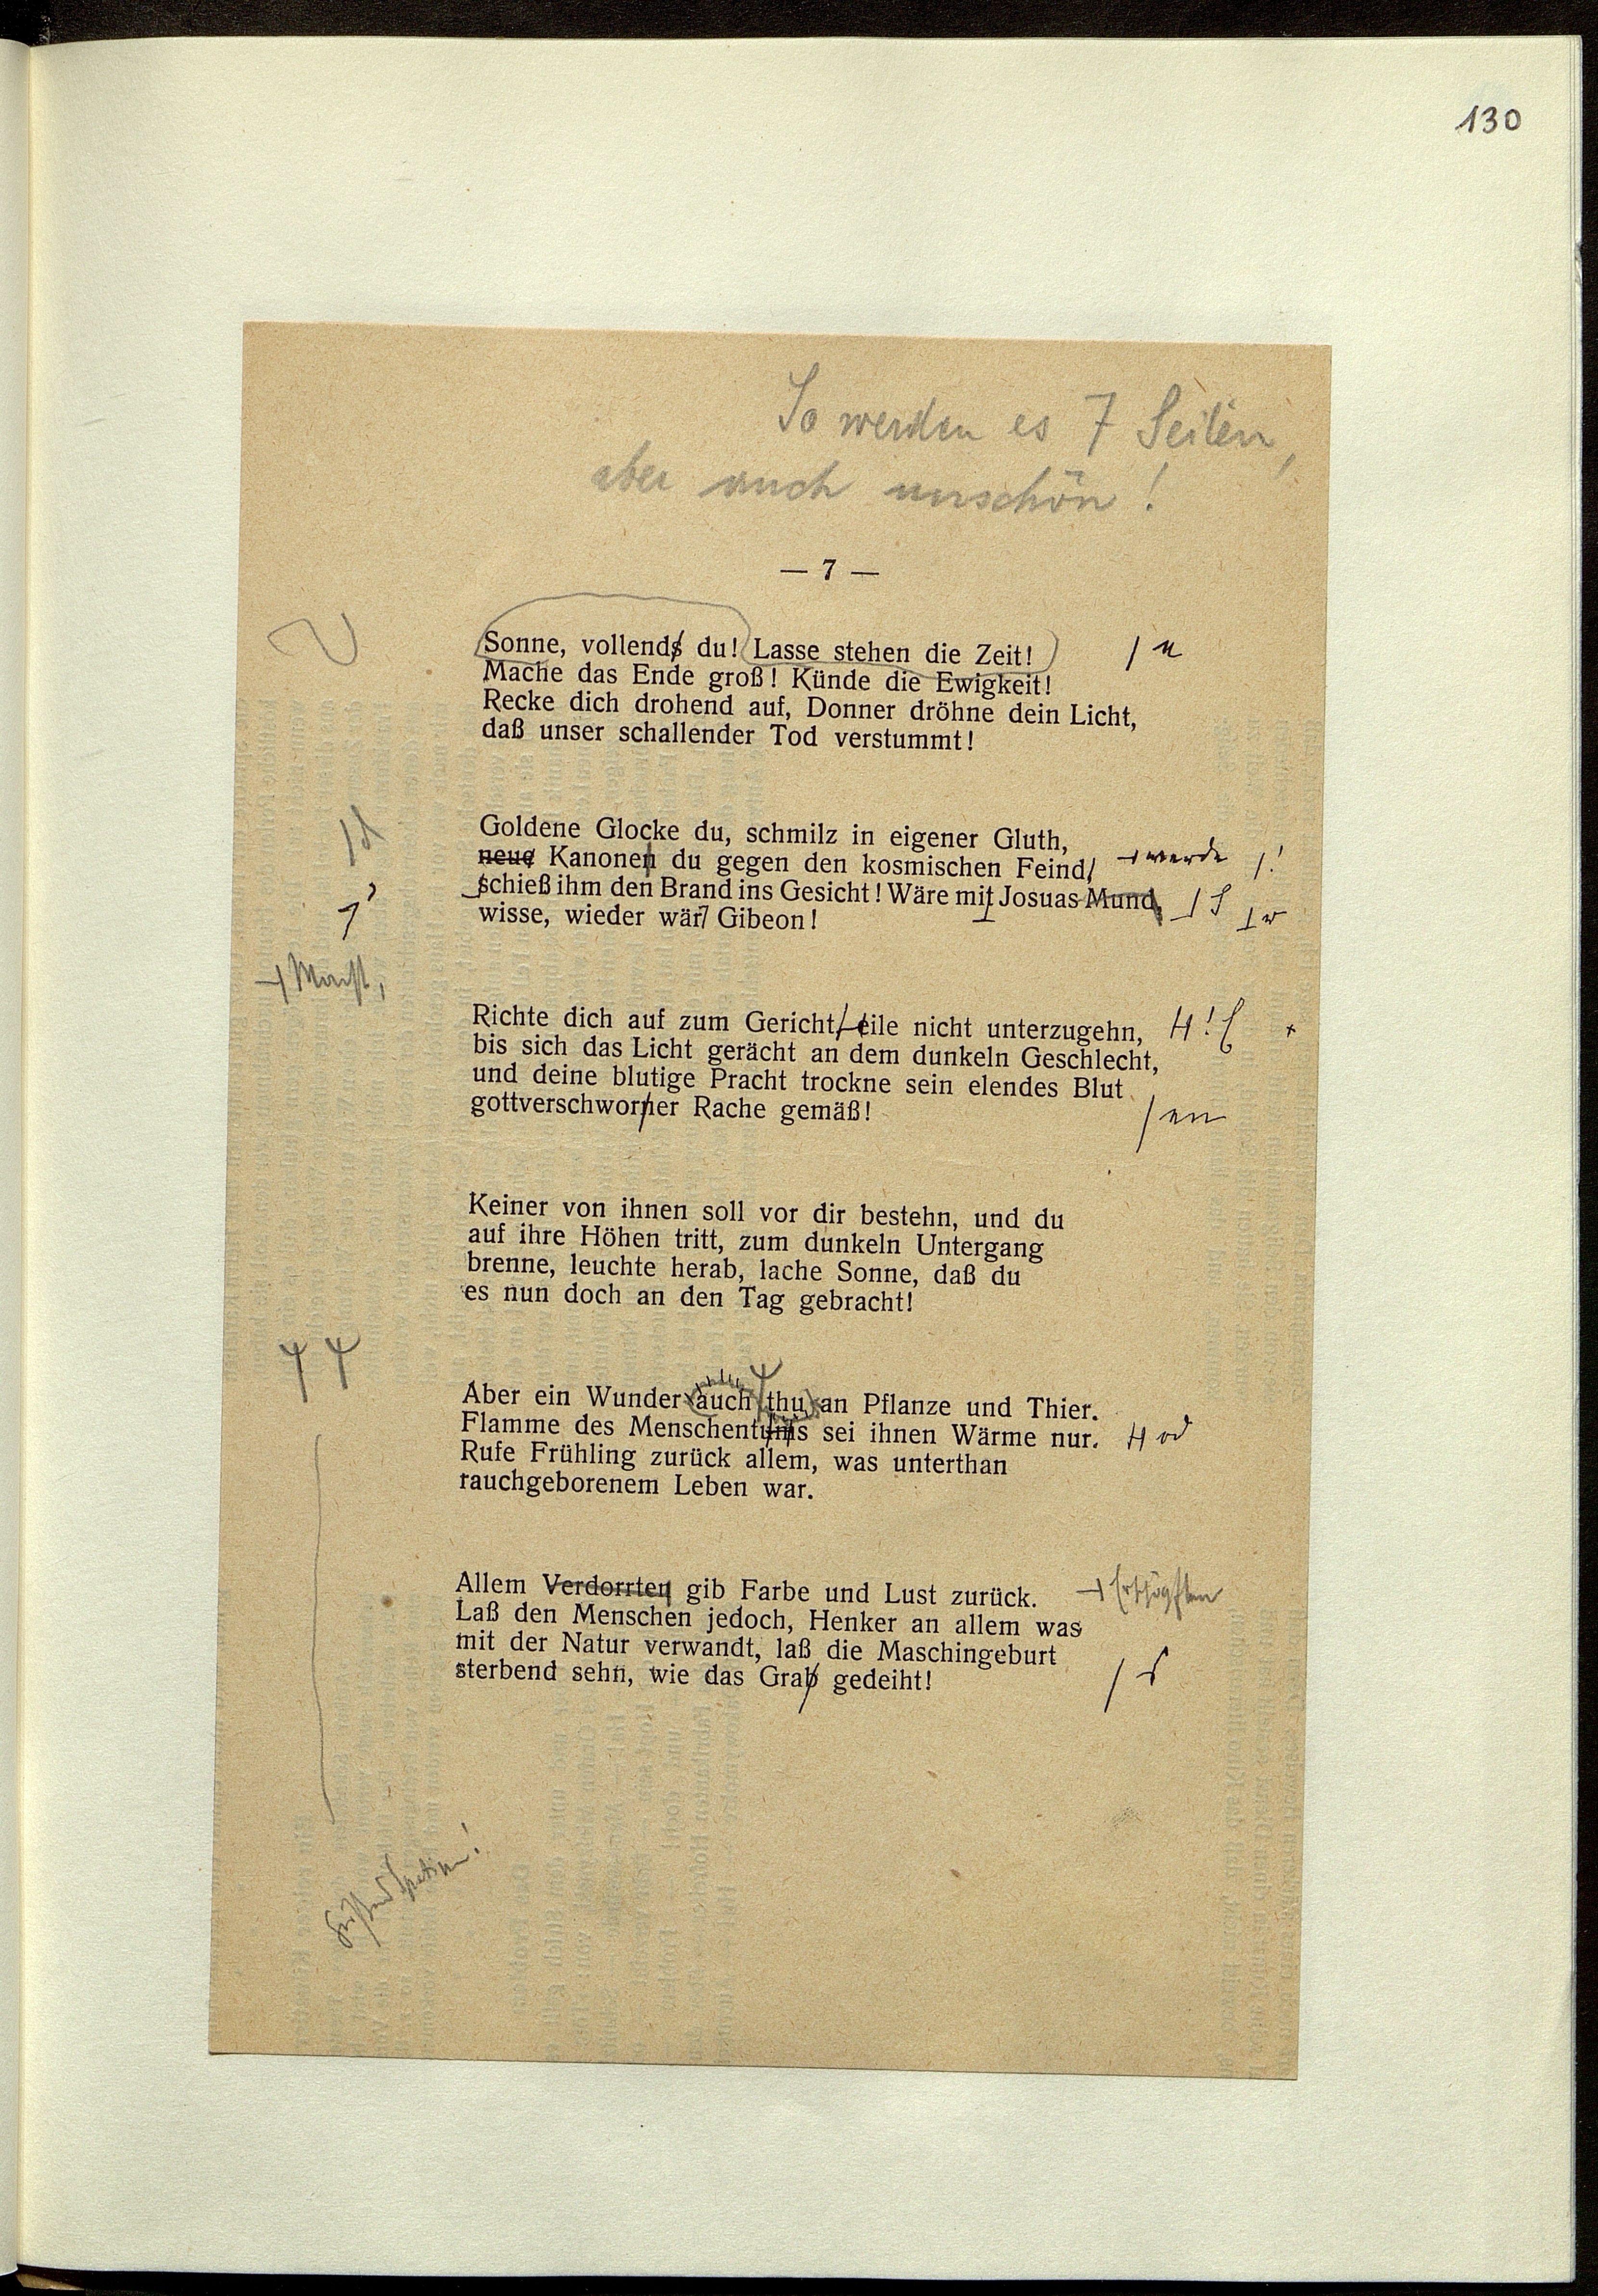 130
So werden es 7 Seiten,
aber auch unschön!
— 7 —
Sonne, vollends du! Lasse stehen die Zeit!
Mache das Ende groß! Künde die Ewigkeit!
Recke dich drohend auf, Donner dröhne dein Licht,
daß unser schallender Tod verstummt!
Goldene Glocke du, schmilz in eigener Gluth,
neue Kanonen du gegen den kosmischen Feind, werde !
schieß ihm den Brand ins Gesicht! Wäre mit Josuas Mund, S w
wisse, wieder wär Gibeon!
Macht,
Richte dich auf zum Gericht, eile nicht unterzugehn, !
bis sich das Licht gerächt an dem dunkeln Geschlecht,
und deine blutige Pracht trockne sein elendes Blut
gottverschworner Rache gemäß! en
Keiner von ihnen soll vor dir bestehn, und du
auf ihre Höhen tritt, zum dunkeln Untergang
brenne, leuchte herab, lache Sonne, daß du
es nun doch an den Tag gebracht!
Aber ein Wunder auch thu an Pflanze und Thier.
Flamme des Menschentums sei ihnen Wärme nur. od
Rufe Frühling zurück allem, was unterthan
rauchgeborenem Leben war.
Allem Verdorrten gib Farbe und Lust zurück. Erschöpften
Laß den Menschen jedoch, Henker an allem was
mit der Natur verwandt, laß die Maschingeburt
sterbend sehn, wie das Grab gedeiht! s